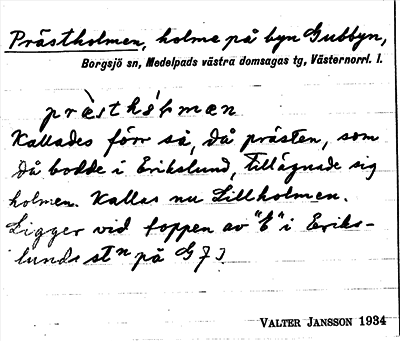 Prästholmen, holme på byn Gubbyn,
Borgsjö sn, Medelpads västra domsagas tg, Västernorrl. l.
Kallades förr så, då prästen, som
då bodde i Erikslund, tillägnade sig
holmen. Kallas nu Lillholmen.
Ligger vid toppen av "E" i Eriks-
lunds stn på G73
VALTER JANSSON 1934